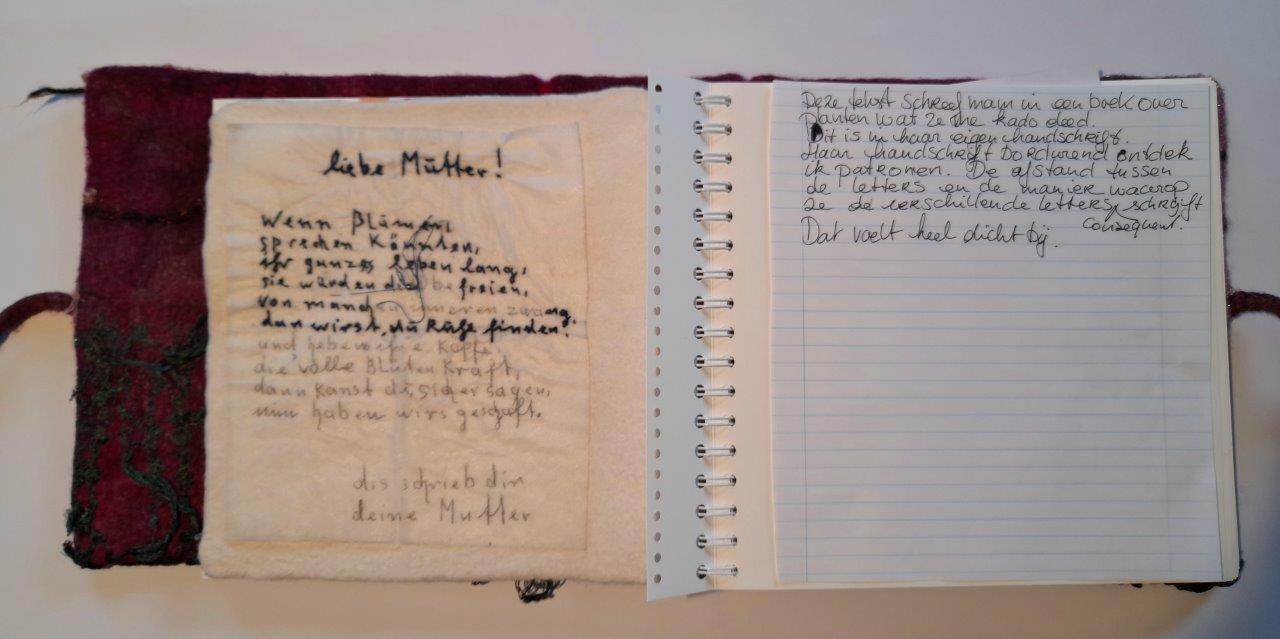 liebe Mutter!
Wenn Blumen,
sprechen Könnten,
ihr ganzes leben lang,
sie würden die befreien,
von manchen inneren zwang.
dan wirst, du Ruhe finden!
und
die volle Blüten Kraft,
dann kanst du, sicher sagen,
nun haben wirs geschaft.
dis schrieb dir
deine Mutter
Deze tekst schreef mam in een boek over
planten wat ze me kado deed.
Dit is in haar eigen handschrift.
Haar handschrift bordurend ontdek
ik patronen. De afstand tussen
de letters en de manier waarop
ze de verschillende letters schrijft
consequent.
Dat voelt heel dicht bij.